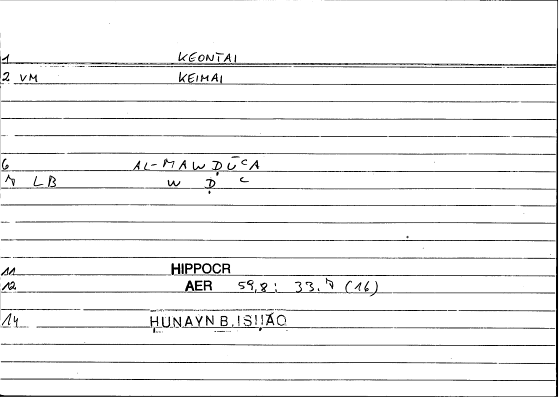 1 KEONTAI
2 VM KEIMAI
6 AL-MAWḌŪʿA
7 LB W Ḍ ʿ
11 HIPPOCR
12 AER 59,8: 33.7 (16)
14 ḤUNAYN B. ISḤĀQ